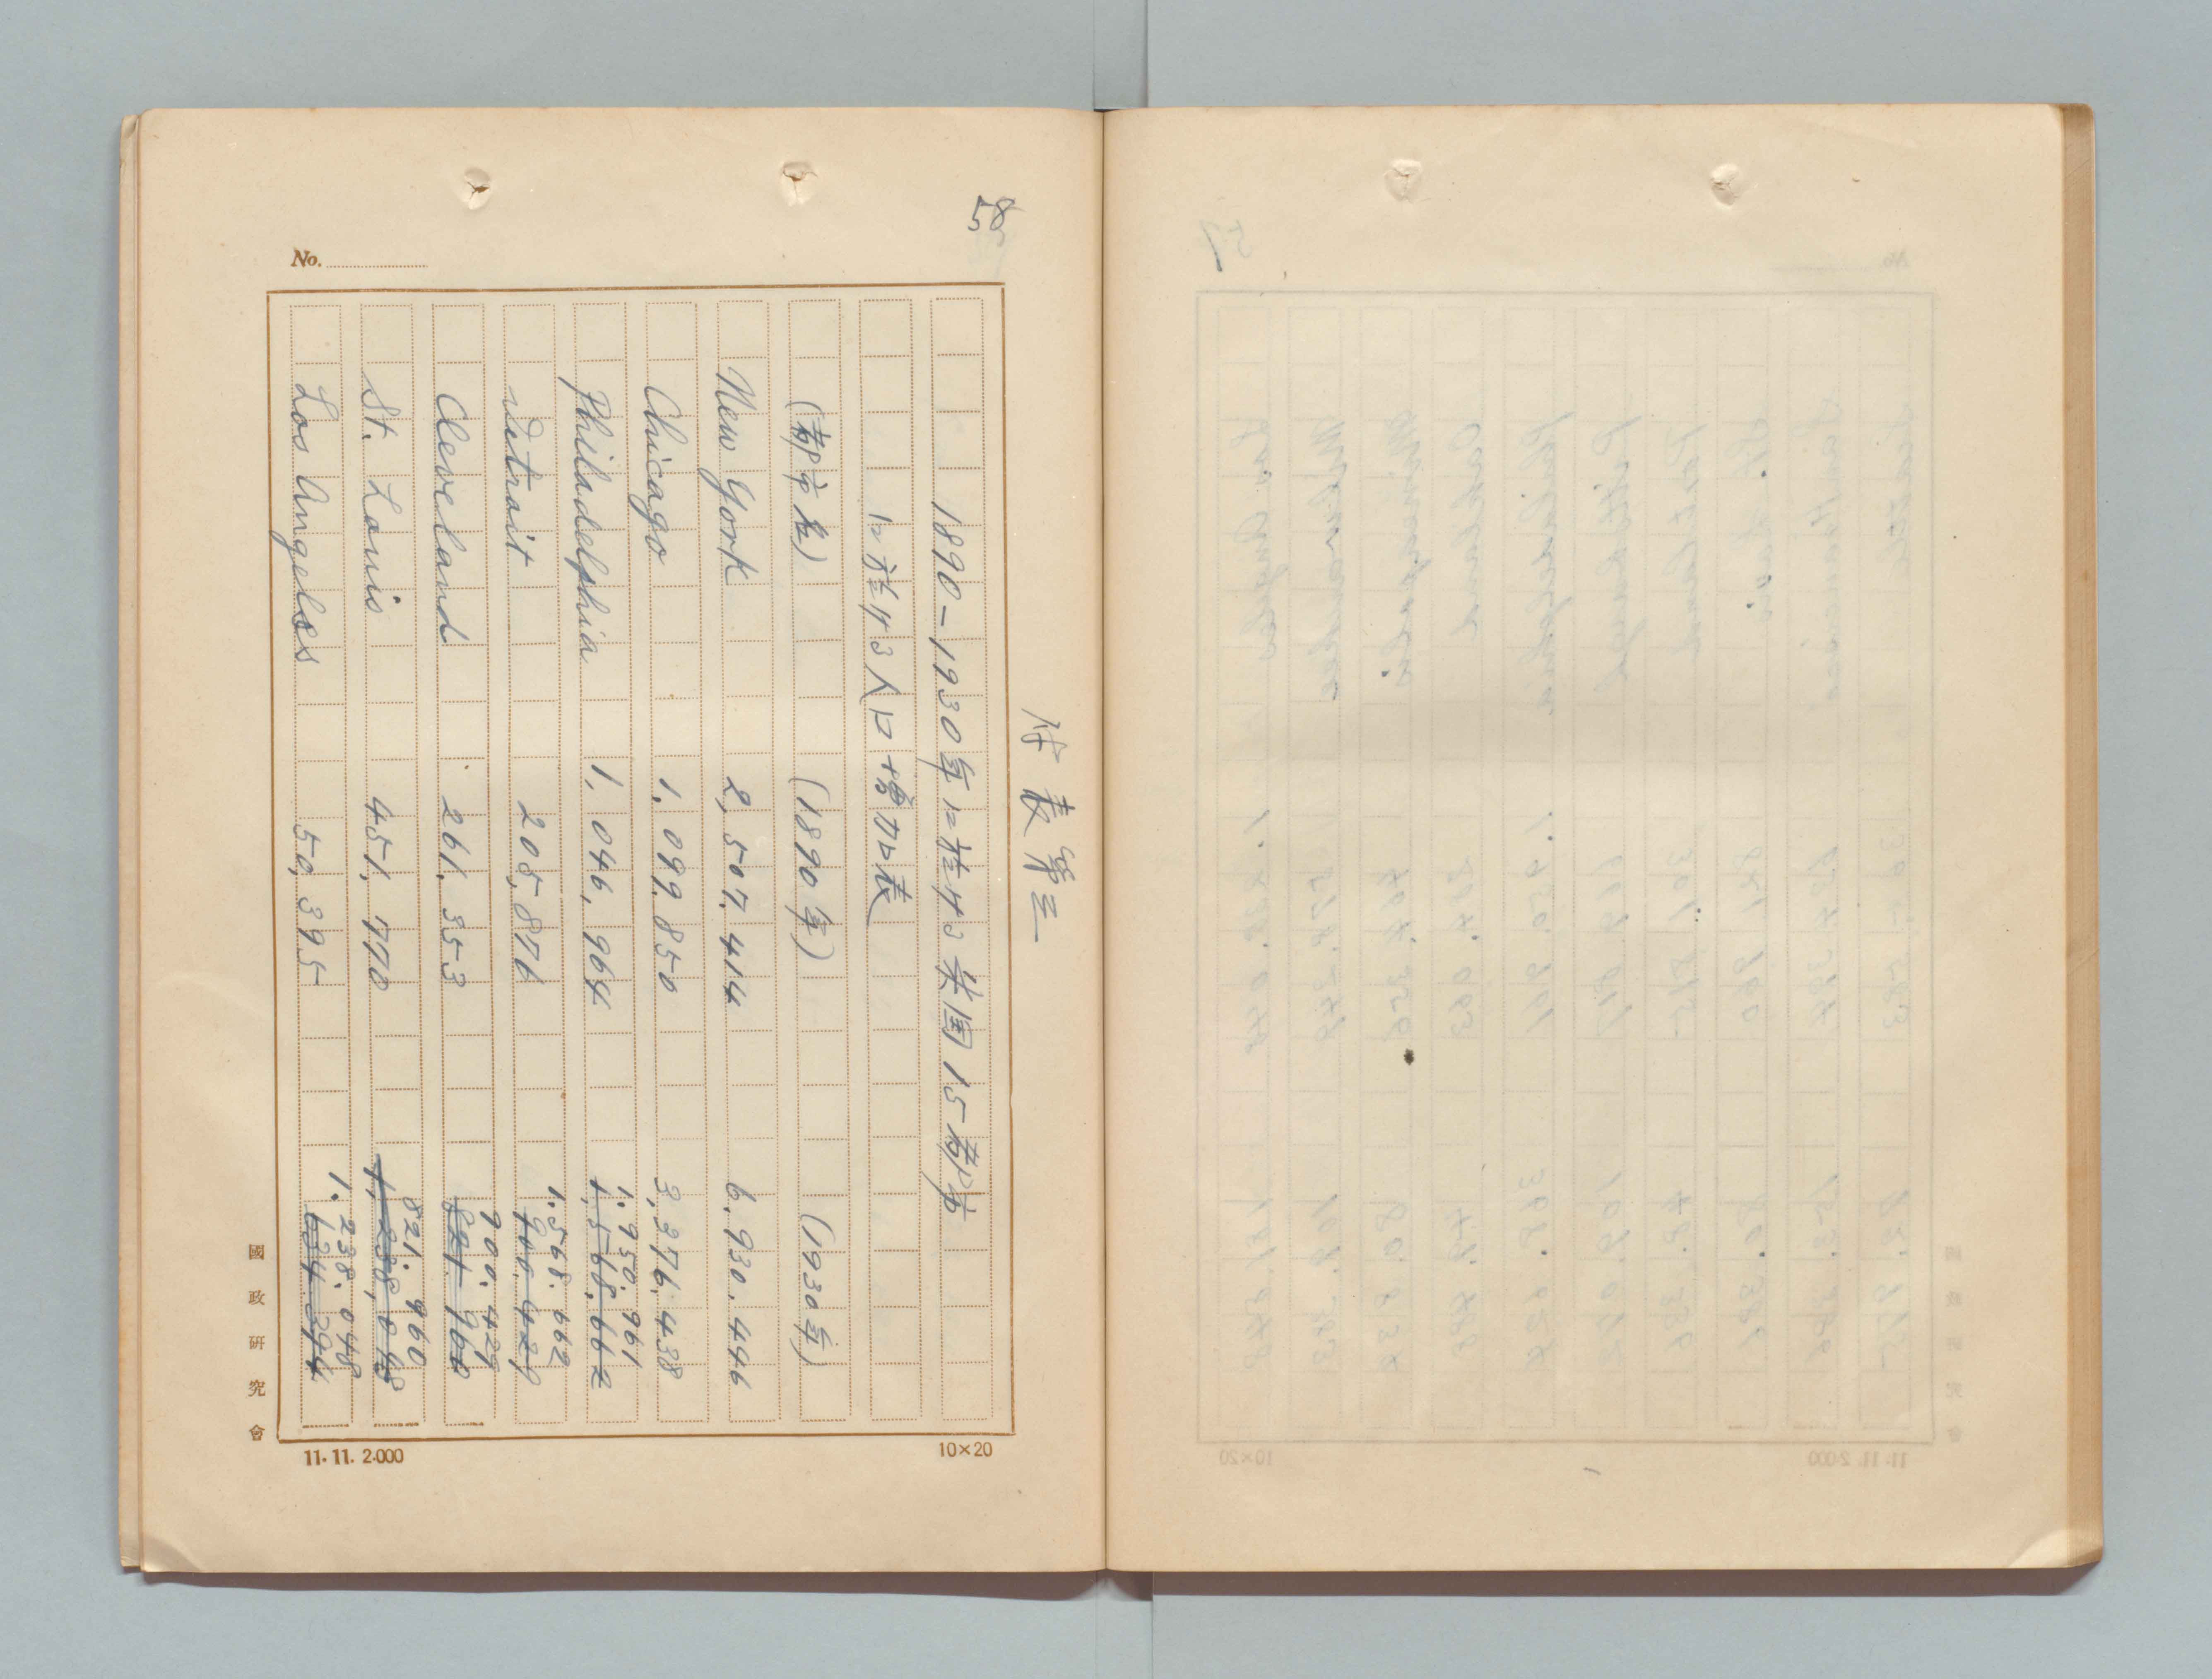 58
No.
附表第三
1890－1930年ニ於ケル米国15都市
ニ於ケル人口増加表
(都市名) (1890年) (1930年)
New York 2,507.414 6.930.446
Chicago 1.099.850 3,376.438
Philadelphia 1,046,964 1.950.961 1,568.662
Detroit 205,876 1.568.662 900.429
Cleveland 261.353 900.429 821.960
St. Louis 451,770 821.960 1.238,048
Los Angeles 50,395 1.238.048 634.394
國政研究會
11. 11. 2.000
10×20